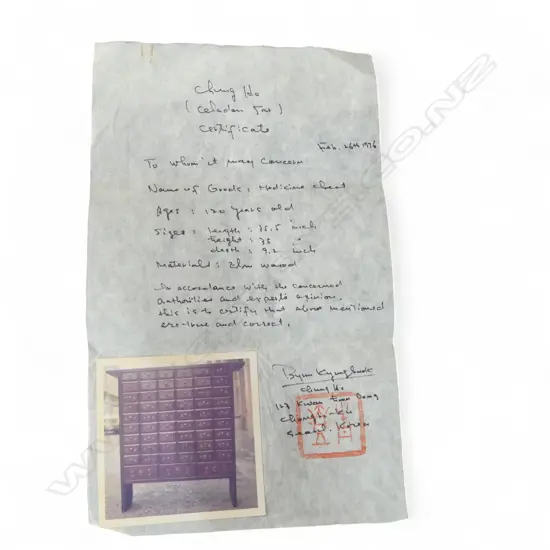 Chung Ho
(Celadon Too)
Certificate
Feb. 26th 1976
To whom it may concern
Name of Goods: Medicine chest
Ages : 120 years old
Sizes : length : 35.5 inch
height : 35 "
depth : 9.2 inch
Materials : Elm wood
In accordance with the concerned
authorities and experts opinion.
this is to certify that above mentioned
are true and correct.
Byun Kyung
Chung Ho
Kwan Dong
Chongro-Ku
Seoul. Korea